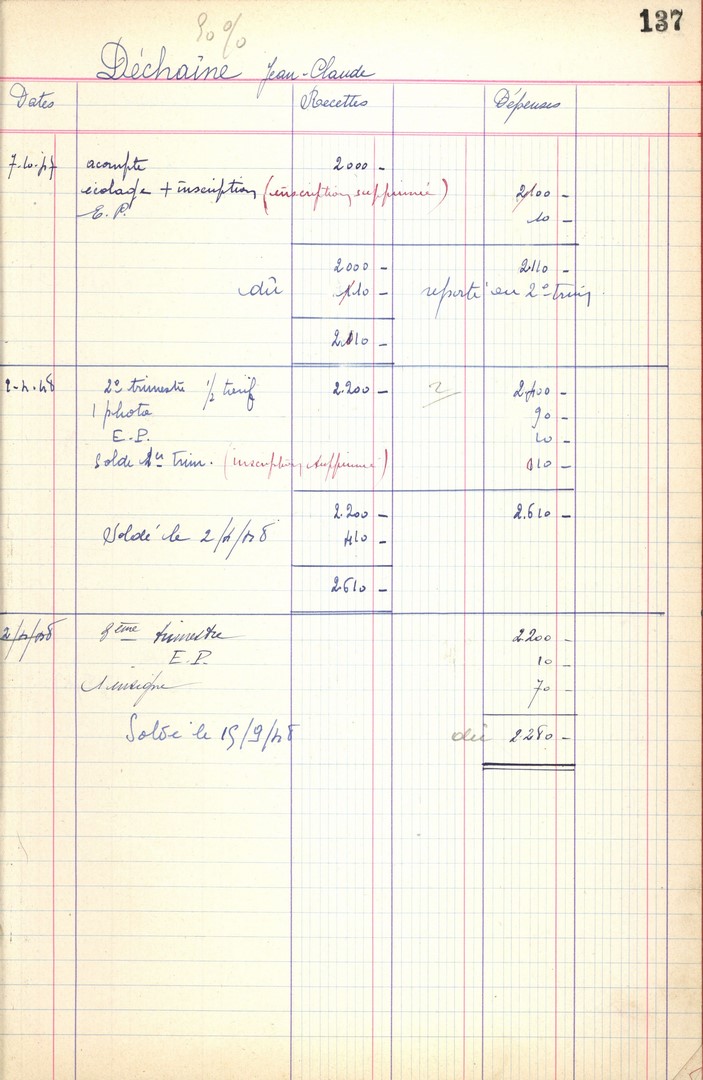 137
50 %
Déchaîne Jean-Claude
Dates Recettes Dépenses
7.10.47 acompte 2000 -
écolage + inscription (inscription supprimée) 2100 -
E.P. 10 -
2000 - 2110 -
dû 110 - reporté au 2e trim.
2110 -
2e trimestre 1/2 tarif 2.200 - 2400 -
1 photo 90 -
E.P. 10 -
Solde 1er trim. (inscription supprimée) 110 -
2.200 - 2.610 -
Soldé le 2/4/48 410 -
2610 -
2/4/48 3ème trimestre 2200 -
E.P. 10 -
1 insigne 70 -
Soldé le 15/9/48 dû 2280 -